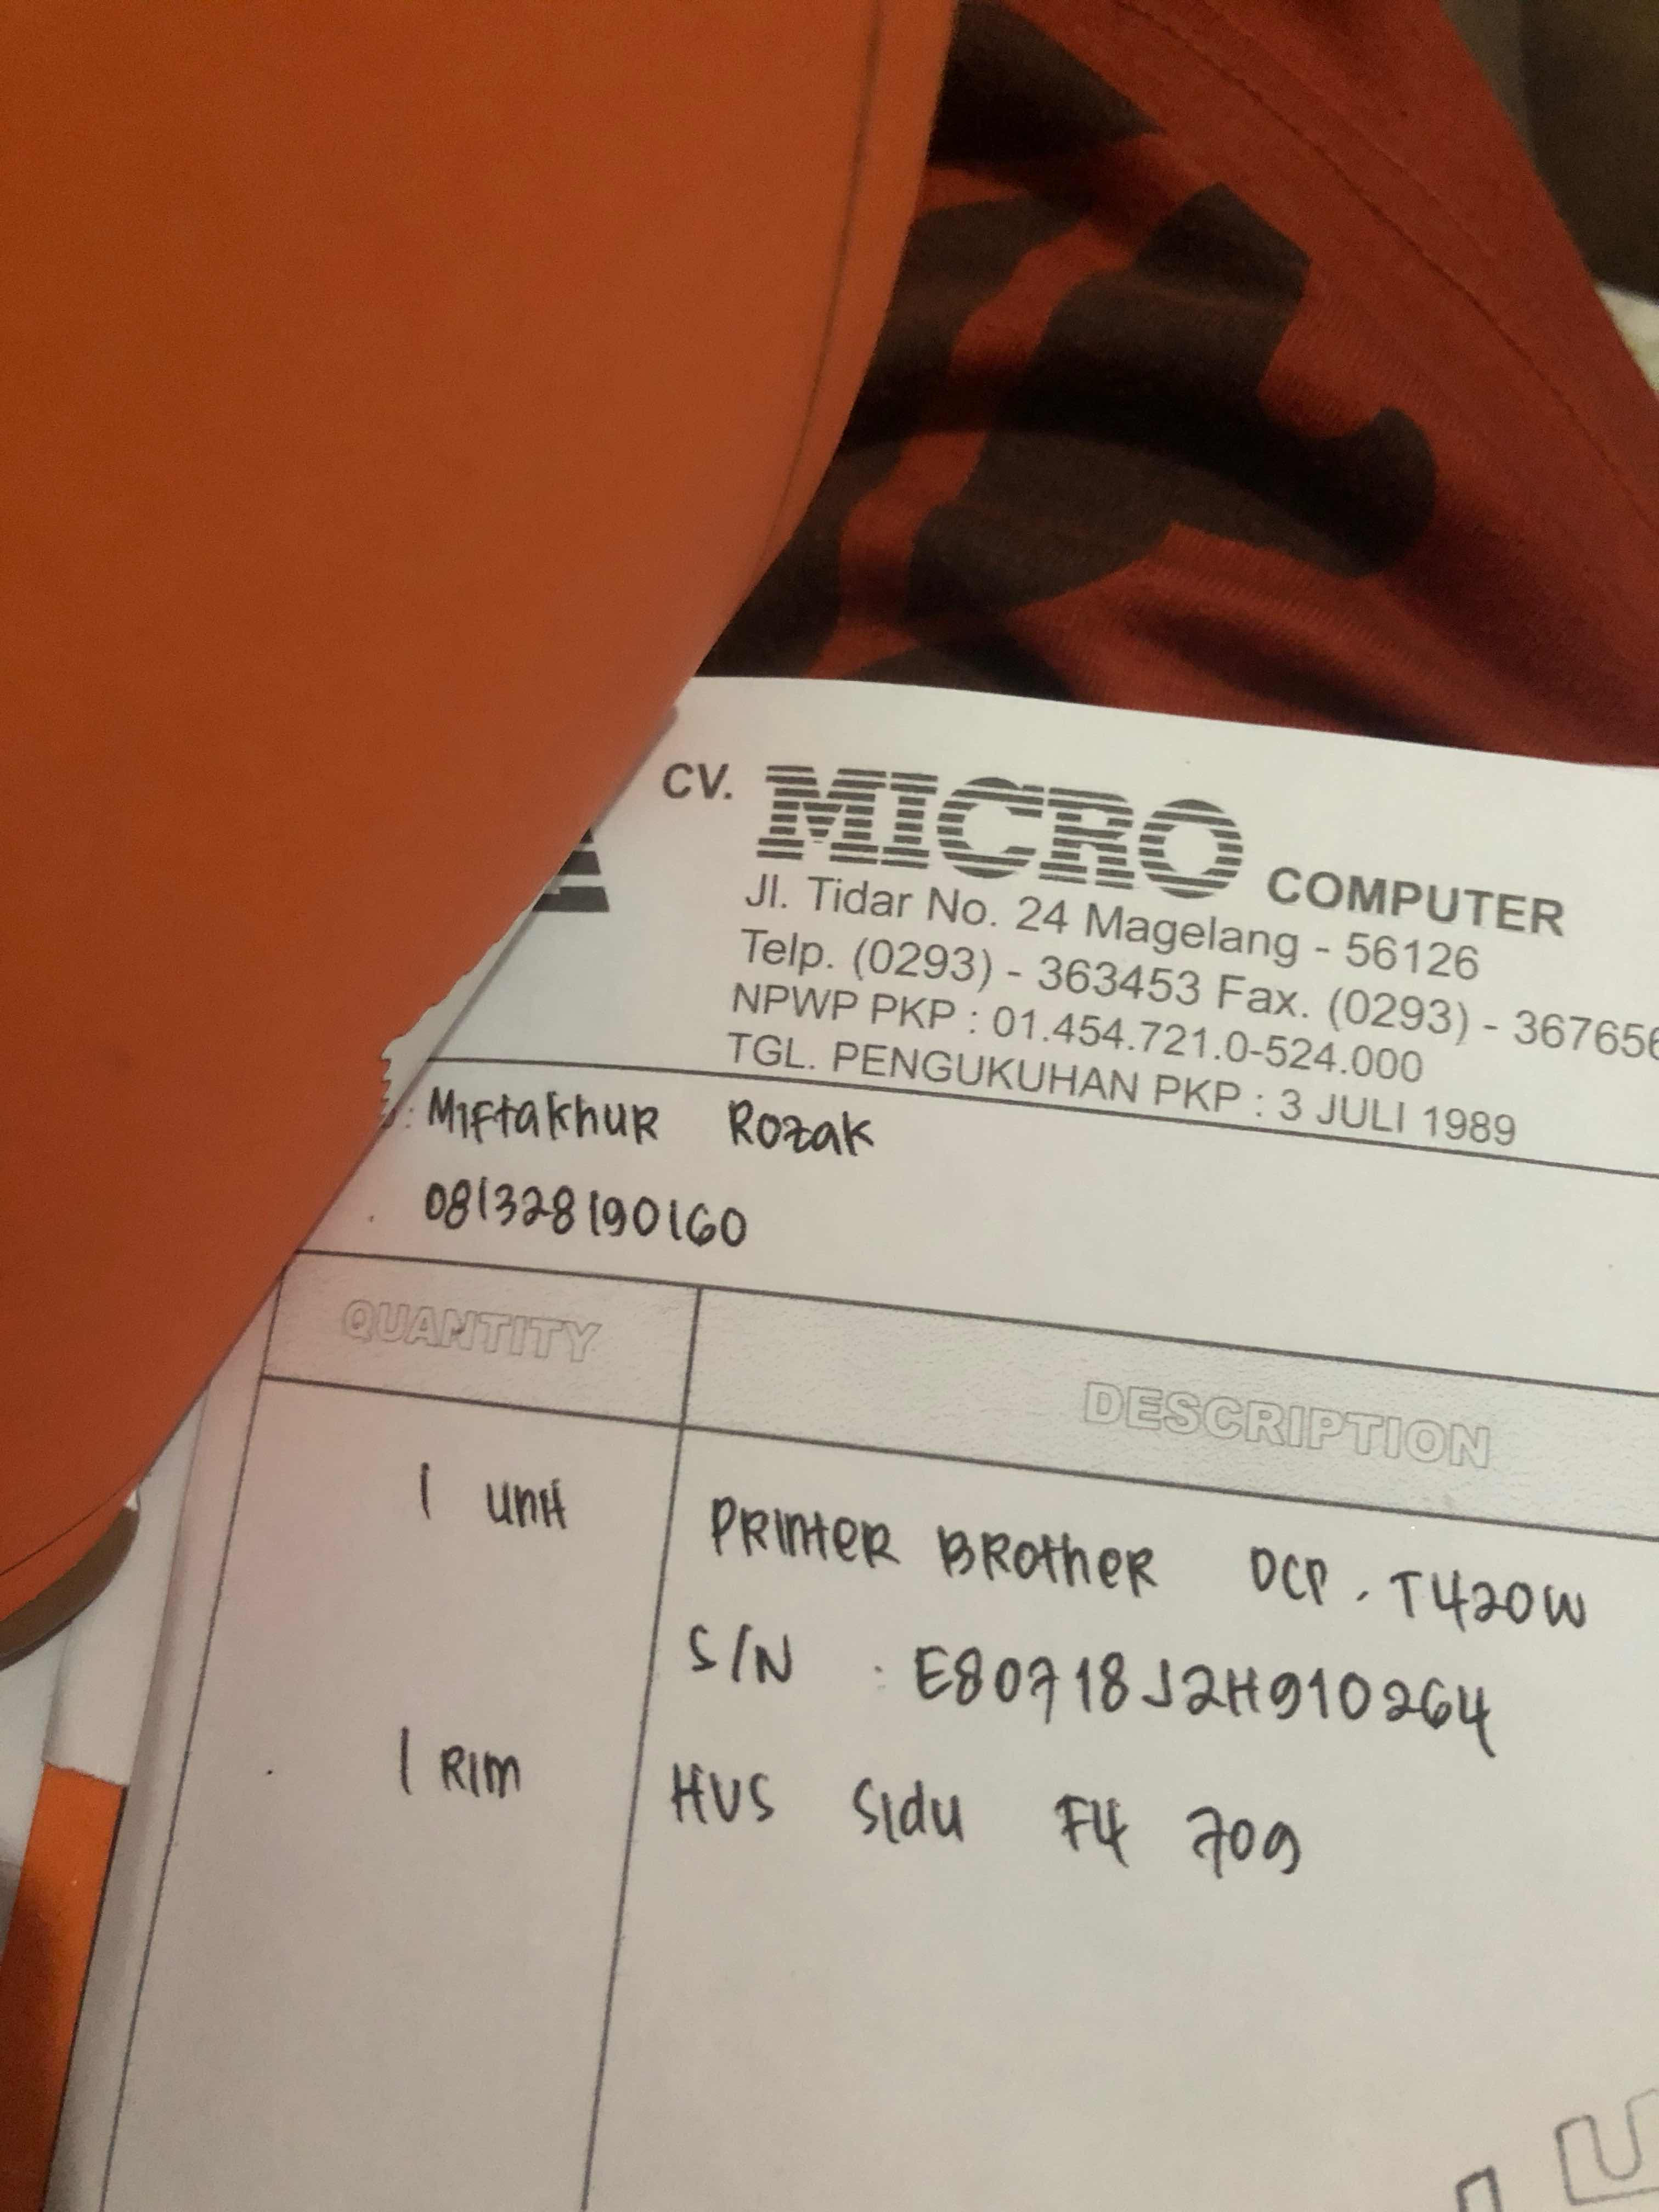 CV. MICRO COMPUTER
Jl. Tidar No. 24 Magelang - 56126
Telp. (0293) - 363453 Fax. (0293) - 367656
NPWP PKP : 01.454.721.0-524.000
TGL. PENGUKUHAN PKP : 3 JULI 1989
: Miftakhur Rozak
081328190160
QUANTITY DESCRIPTION
1 unit Printer Brother DCP. T420W
S/N : E80718J2H910264
1 Rim HVS Sidu F4 70g